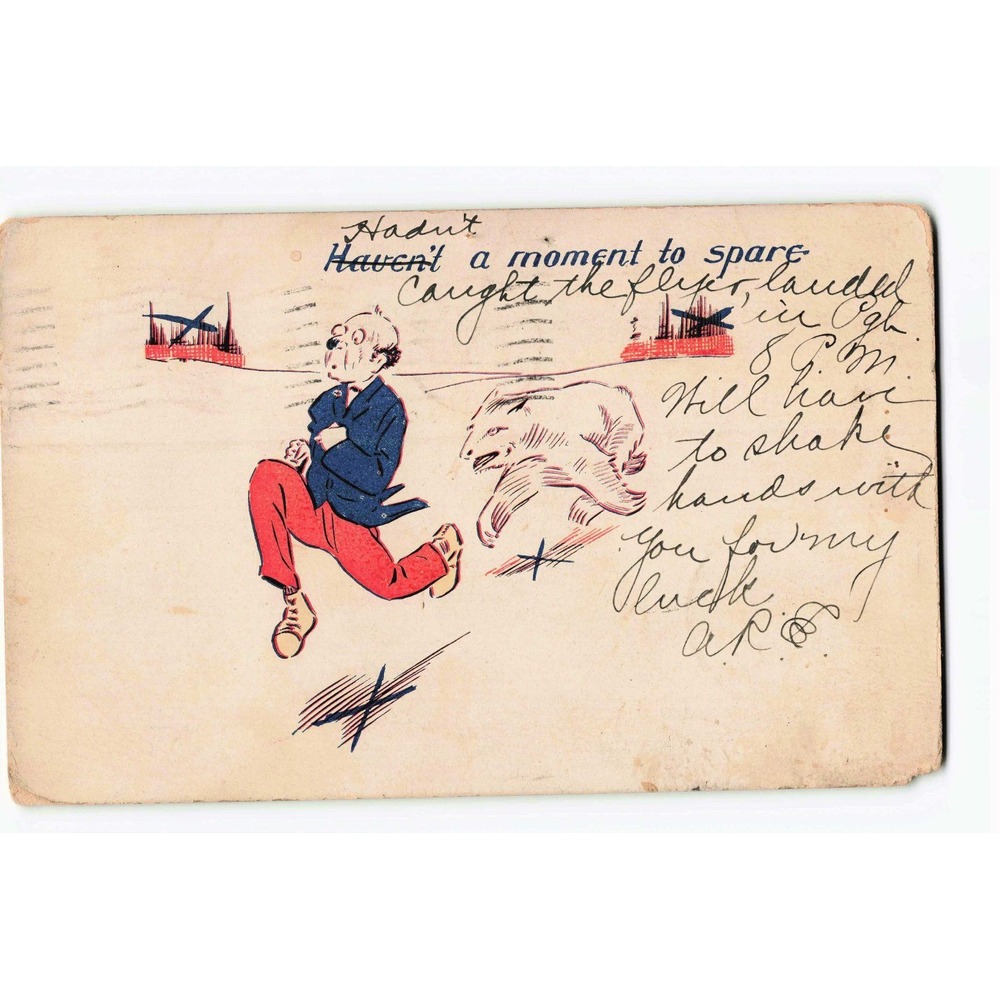 Hadn't
Haven't a moment to spare
caught the flyer, landed
in Pgh.
8 P.M.
Will have
to shake
hands with
you for my
luck
A.R.